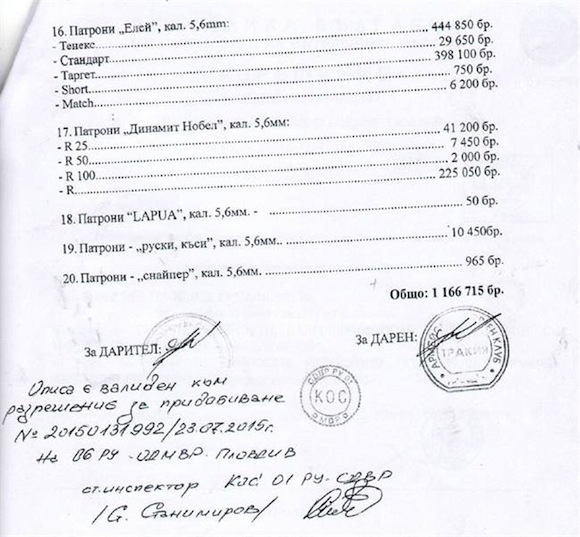 16. Патрони „Елей”, кал. 5,6mm:
444 850 бр.
- Тенекс............ 29 650 бр.
- Стандарт............ 398 100 бр.
- Таргет............ 750 бр.
- Short............ 6 200 бр.
- Match............
17. Патрони „Динамит Нобел”, кал. 5,6мм:
- R 25............ 41 200 бр.
- R 50............ 7 450 бр.
- R 100............ 2 000 бр.
- R............ 225 050 бр.
18. Патрони “LAPUA”, кал. 5,6мм. - ............ 50 бр.
19. Патрони - „руски, къси”, кал. 5,6мм.. ............ 10 450бр.
20. Патрони - „снайпер”, кал. 5,6мм. ............ 965 бр.
Общо: 1 166 715 бр.
За ДАРИТЕЛ:
За ДАРЕН:
ТРАКИЯ
КОС
Описа е валиден към
разрешение за придобиване
№ 20150131992/23.07.2015г.
на 06 РУ - ОДМВР. Пловдив
ст. инспектор КОС 01 РУ - СДВР
/G. Станимиров/